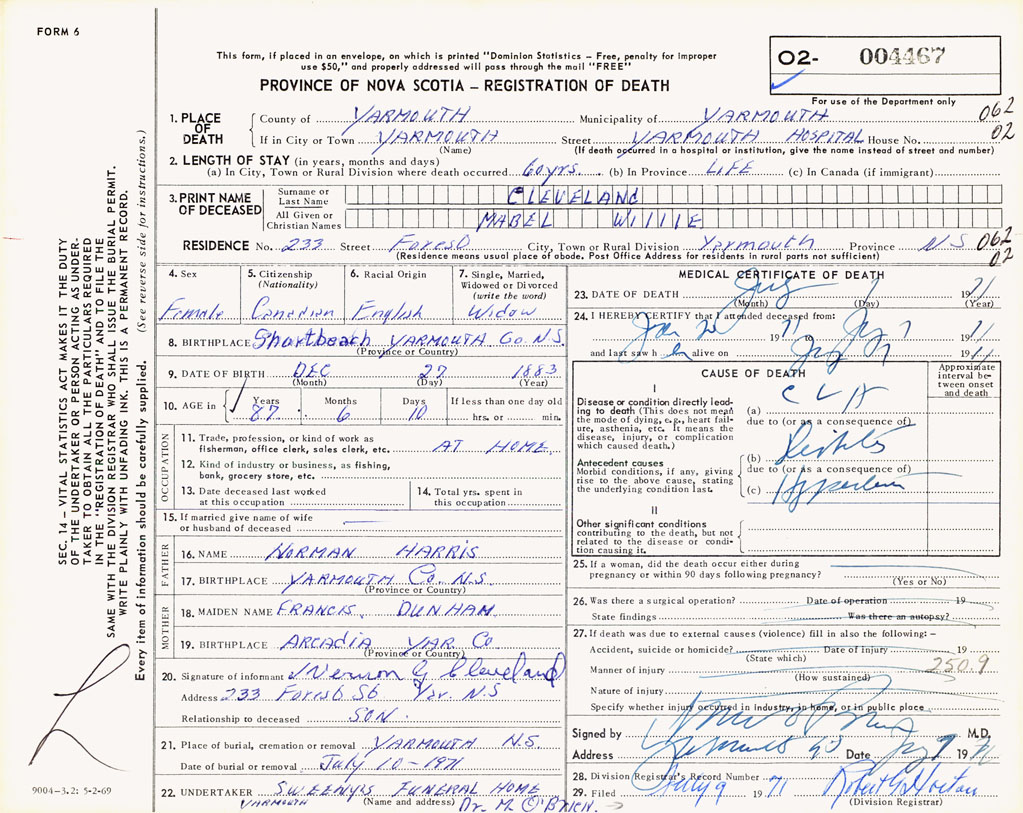 FORM 6
This form, if placed in an envelope, on which is printed "Dominion Statistics – Free, penalty for improper
use $50," and properly addressed will pass through the mail "FREE"
02- 004467
PROVINCE OF NOVA SCOTIA – REGISTRATION OF DEATH
For use of the Department only
1. PLACE OF DEATH County of YARMOUTH Municipality of YARMOUTH 062
If in City or Town YARMOUTH Street YARMOUTH HOSPITAL House No. 02
(Name) (If death occurred in a hospital or institution, give the name instead of street and number)
2. LENGTH OF STAY (in years, months and days)
(a) In City, Town or Rural Division where death occurred 60 yrs. (b) In Province LIFE (c) In Canada (if immigrant)
3. PRINT NAME OF DECEASED Surname or Last Name CLEVELAND
All Given or Christian Names MABEL WILLIE
RESIDENCE No. 233 Street Forest City, Town or Rural Division Yarmouth Province N.S 062
(Residence means usual place of abode. Post Office Address for residents in rural parts not sufficient) 02
4. Sex 5. Citizenship (Nationality) 6. Racial Origin 7. Single, Married, Widowed or Divorced (write the word)
Female Canadian English Widow
8. BIRTHPLACE YARMOUTH Co. N.S
(Province or Country)
9. DATE OF BIRTH DEC 27 1883
(Month) (Day) (Year)
10. AGE in Years Months Days If less than one day old
87 6 10 hrs. or min.
OCCUPATION
11. Trade, profession, or kind of work as
fisherman, office clerk, sales clerk, etc. AT HOME
12. Kind of industry or business, as fishing,
bank, grocery store, etc.
13. Date deceased last worked at this occupation
14. Total yrs. spent in this occupation
15. If married give name of wife
or husband of deceased
FATHER
16. NAME NORMAN HARRIS
17. BIRTHPLACE YARMOUTH Co. N.S
(Province or Country)
MOTHER
18. MAIDEN NAME FRANCIS DUNHAM
19. BIRTHPLACE ARCADIA YAR Co
(Province or Country)
20. Signature of informant Vernon G Cleveland
Address 233 Forest St Yar. N.S
Relationship to deceased SON.
21. Place of burial, cremation or removal YARMOUTH N.S.
Date of burial or removal July 10-1971
22. UNDERTAKER SWEENY'S FUNERAL HOME
YARMOUTH (Name and address) Dr. M. O'BRIEN.
MEDICAL CERTIFICATE OF DEATH
23. DATE OF DEATH July 7 1971
(Month) (Day) (Year)
24. I HEREBY CERTIFY that I attended deceased from:
Jan 1971 to July 7 1971
and last saw h er alive on July 7 1971
CAUSE OF DEATH
Approximate interval between onset and death
I
Disease or condition directly leading to death (This does not mean
the mode of dying, e.g., heart failure, asthenia, etc. It means the
disease, injury, or complication
which caused death.)
(a)
due to (or as a consequence of)
Antecedent causes
Morbid conditions, if any, giving
rise to the above cause, stating
the underlying condition last.
(b)
due to (or as a consequence of)
(c)
II
Other significant conditions
contributing to the death, but not
related to the disease or condition causing it.
25. If a woman, did the death occur either during
pregnancy or within 90 days following pregnancy?
(Yes or No)
26. Was there a surgical operation? Date of operation 19
State findings Was there an autopsy?
27. If death was due to external causes (violence) fill in also the following: –
Accident, suicide or homicide? Date of injury 19
(State which)
Manner of injury 250.9
(How sustained)
Nature of injury
Specify whether injury occurred in industry, in home, or in public place
Signed by M.D.
Address Yarmouth NS Date July 7 1971
28. Division Registrar's Record Number
29. Filed July 9 1971 Robert G. Horton
(Division Registrar)
SEC. 14 – VITAL STATISTICS ACT MAKES IT THE DUTY
OF THE UNDERTAKER OR PERSON ACTING AS UNDER-
TAKER TO OBTAIN ALL THE PARTICULARS REQUIRED
IN THE "REGISTRATION OF DEATH" AND TO FILE THE
SAME WITH THE DIVISION REGISTRAR WHO SHALL ISSUE THE BURIAL PERMIT.
WRITE PLAINLY WITH UNFADING INK. THIS IS A PERMANENT RECORD.
Every item of information should be carefully supplied. (See reverse side for instructions.)
9004-3.2: 5-2-69